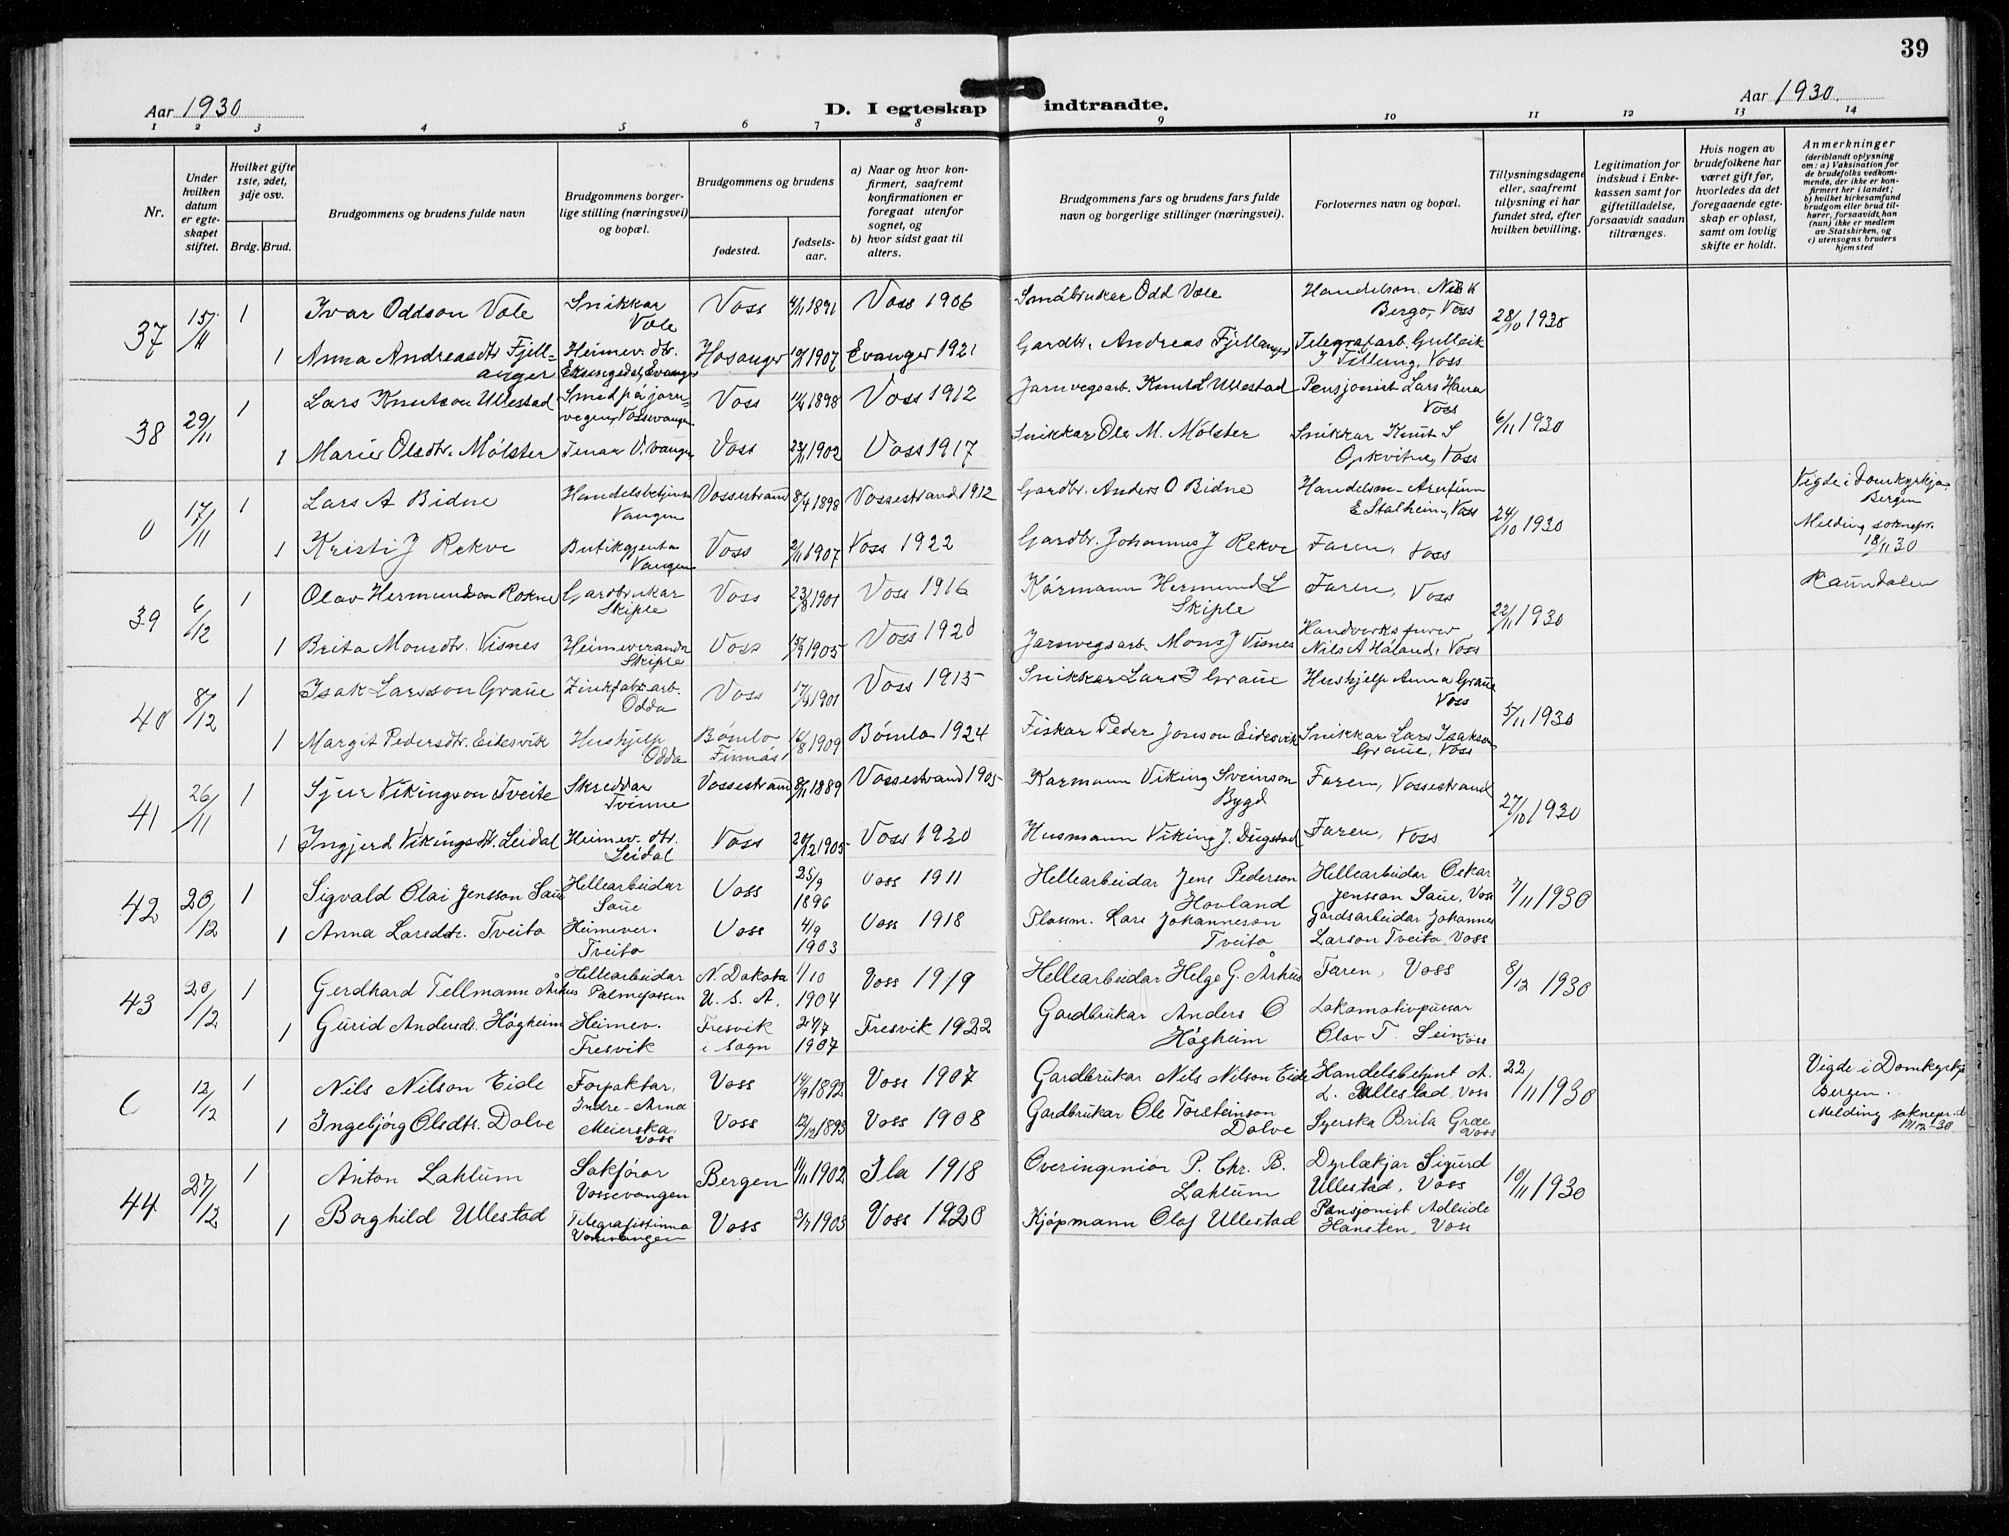 39
Aar 1930
D. I egteskap indtraadte.
Aar 1930
1 2 3 4 5 6 7 8 9 10 11 12 13 14
Nr.
Under hvilken datum er egteskapet stiftet.
Hvilket gifte 1ste, 2det, 3dje osv.
Brdg. Brud.
Brudgommens og brudens fulde navn
Brudgommens borgerlige stilling (næringsvei) og bopæl.
Brudgommens og brudens
fødested.
fødselsaar.
a) Naar og hvor konfirmert, saafremt konfirmationen er foregaat utenfor sognet, og
b) hvor sidst gaat til alters.
Brudgommens fars og brudens fars fulde navn og borgerlige stillinger (næringsvei).
Forlovernes navn og bopæl.
Tillysningsdagene eller, saafremt tillysning ei har fundet sted, efter hvilken bevilling.
Legitimation for indskud i Enkekassen samt for giftetilladelse, forsaavidt saadan tiltrænges.
Hvis nogen av brudefolkene har været gift før, hvorledes da det foregaaende egteskap er opløst, samt om lovlig skifte er holdt.
Anmerkninger
(deriblandt oplysning om: a) Vaksination for de brudefolks vedkommende, der ikke er konfirmert her i landet;
b) hvilket kirkesamfund brudgom eller brud tilhører, forsaavidt han (hun) ikke er medlem av Statskirken, og
c) utensogns bruders hjemsted
37 15/11 1 Ivar Oddson Vole Snikkar Vole Voss 4/11 1891 Voss 1906 Småbruker Odd Vole Handelsm. Nils K Bergo, Voss 28/10 1930
1 Anna Andreasdtr Fjellanger Heimev. dtr. Eksingedal, Evanger Hosanger 1907 Evanger 1921 Gardbr. Andreas Fjellanger Telegrafarb. Gulleik J Tillung, Voss
38 29/11 1 Lars Knutson Ullestad Smed på jarnvegen, Vossevangen Voss 1898 Voss 1912 Jarnvegsarb. Knut L Ullestad Pensjonist Lars Voss 6/11 1930
1 Marie Olsdtr. Mølster V. vangen Voss 23/11 1902 Voss 1917 Snikkar Ole M. Mølster Snikkar Knut S Opkvitne, Voss
0 17/11 1 Lars A Bidne Handelsbetjent Vangen Vossestrand 8/4 1898 Vossestrand 1912 Gardbr. Anders O Bidne Handelsm. Arnfinn E Stalheim, Voss 24/10 1930 Vigde i Domkyrkja, Bergen
1 Kristi J Rekve Butikgjenta Vangen Voss 2/11 1907 Voss 1922 Gardbr. Johannes J Rekve Faren, Voss Melding soknepr. 18/11 30
39 6/12 1 Olav Hermundson Rokne Gardbrukar Skiple Voss 23/8 1901 Voss 1916 Kårmann Hermund L Skiple Faren, Voss 22/11 1930 Raundalen
1 Brita Monsdtr. Visnes Heimeverande Skiple Voss 15/9 1905 Voss 1920 Jarnvegsarb. Mons J Visnes Handverksfurer Nils A Håland, Voss
40 8/12 1 Isak Larsson Graue Zinkfabr. arb. Odda Voss 17/4 1901 Voss 1915 Snikkar Lars I Graue Hushjelp Anna Graue Voss 5/11 1930
1 Margit Pedersdtr. Eidesvik Hushjelp Odda Bømlo Finnås 16/8 1909 Bømlo 1924 Fiskar Peder Jonson Eidesvik Snikkar Lars Isakson Graue, Voss
41 26/11 1 Sjur Vikingson Tveite Skreddar Tvinne Vossestrand 8/11 1889 Vossestrand 1905 Karmann Viking Sveinson Bygd Faren, Vossestrand 27/10 1930
1 Ingjerd Vikingsdtr. Leidal Heimev. dtr. Leidal Voss 20/12 1905 Voss 1920 Husmann Viking J. Dugstad Faren, Voss
42 20/12 1 Sigvald Olai Jensson Saue Hellearbeidar Saue Voss 25/9 1896 Voss 1911 Hellearbeidar Jens Pederson Hovland Hellearbeidar Oskar Jensson Saue, Voss 7/11 1930
1 Anna Larsdtr. Tveito Heimever. Tveito Voss 4/9 1903 Voss 1918 Plassm. Lars Johanneson Tveito Gardsarbeidar Johannes Larson Tveito, Voss
43 20/12 1 Gerdhard Tellmann Århus Hellearbeidar Palmafossen N. Dakota U. S. A. 1/10 1904 Voss 1919 Hellearbeidar Helge G. Århus Faren, Voss 8/12 1930
1 Gurid Andersdt. Høgheim Heimev. Fresvik Fresvik i Sogn 24/7 1907 Fresvik 1922 Gardbrukar Anders O Høgheim Lokomotivpussar Olav T. Seim Voss
0 12/12 1 Nils Nilson Eide Forpaktar, Indre-Arna Voss 14/9 1892 Voss 1907 Gardbrukar Nils Nilson Eide Handelsbetjent A. L. Ullestad, Voss 22/11 1930 Vigde i Domkyrkja Bergen.
1 Ingebjørg Olsdtr. Dolve Meierska, Voss Voss 12/12 1893 Voss 1908 Gardbrukar Ole Torsteinson Dolve Syerska Brita Græe Voss Melding soknepr. d. 17/12 30
44 27/12 1 Anton Lahlum Sakførar Vossevangen Bergen 11/11 1902 Ila 1918 Overingeniør P. Chr. B. Lahlum Dyrlækjar Sigurd Ullestad, Voss 10/11 1930
1 Borghild Ullestad Telegrafistinna Vossevangen Voss 3/7 1903 Voss 1920 Kjøpmann Olaf Ullestad Pensjonist Adleide Hansten, Voss